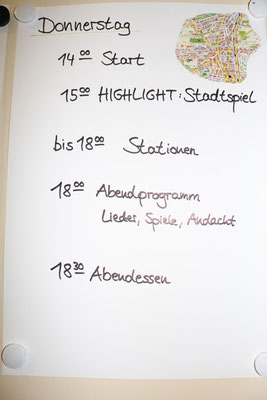 Donnerstag
14 00 Start
15 00 HIGHLIGHT: Stadtspiel
bis 18 00 Stationen
18 00 Abendprogramm
Lieder, Spiele, Andacht
18 30 Abendessen